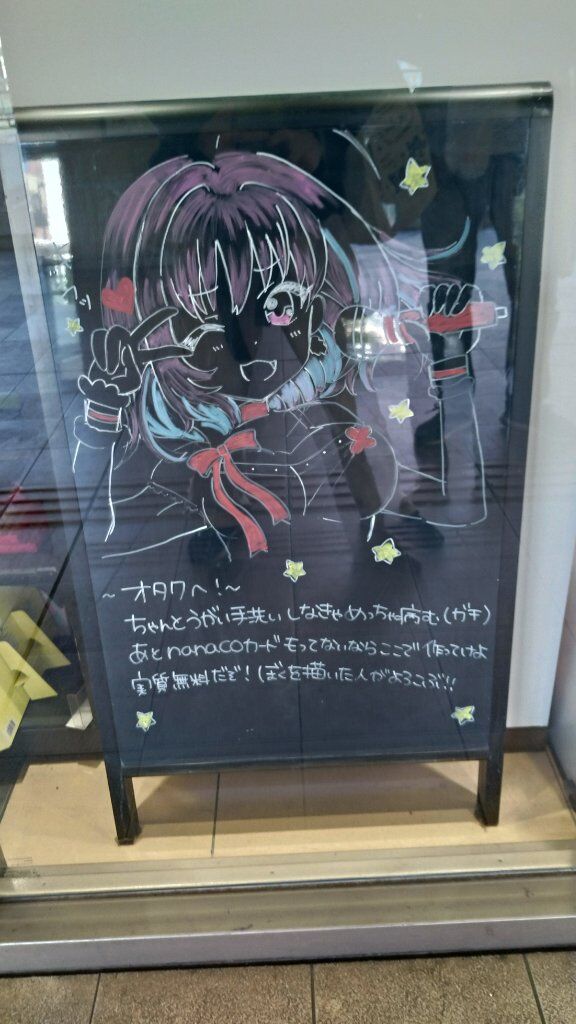 ~オタクへ!~
ちゃんとうがい手洗いしなきゃめっちゃ病む(ガチ)
あとnanacoカードもってないならここで作ってけよ
実質無料だぞ!ぼくを描いた人がよろこぶ!!